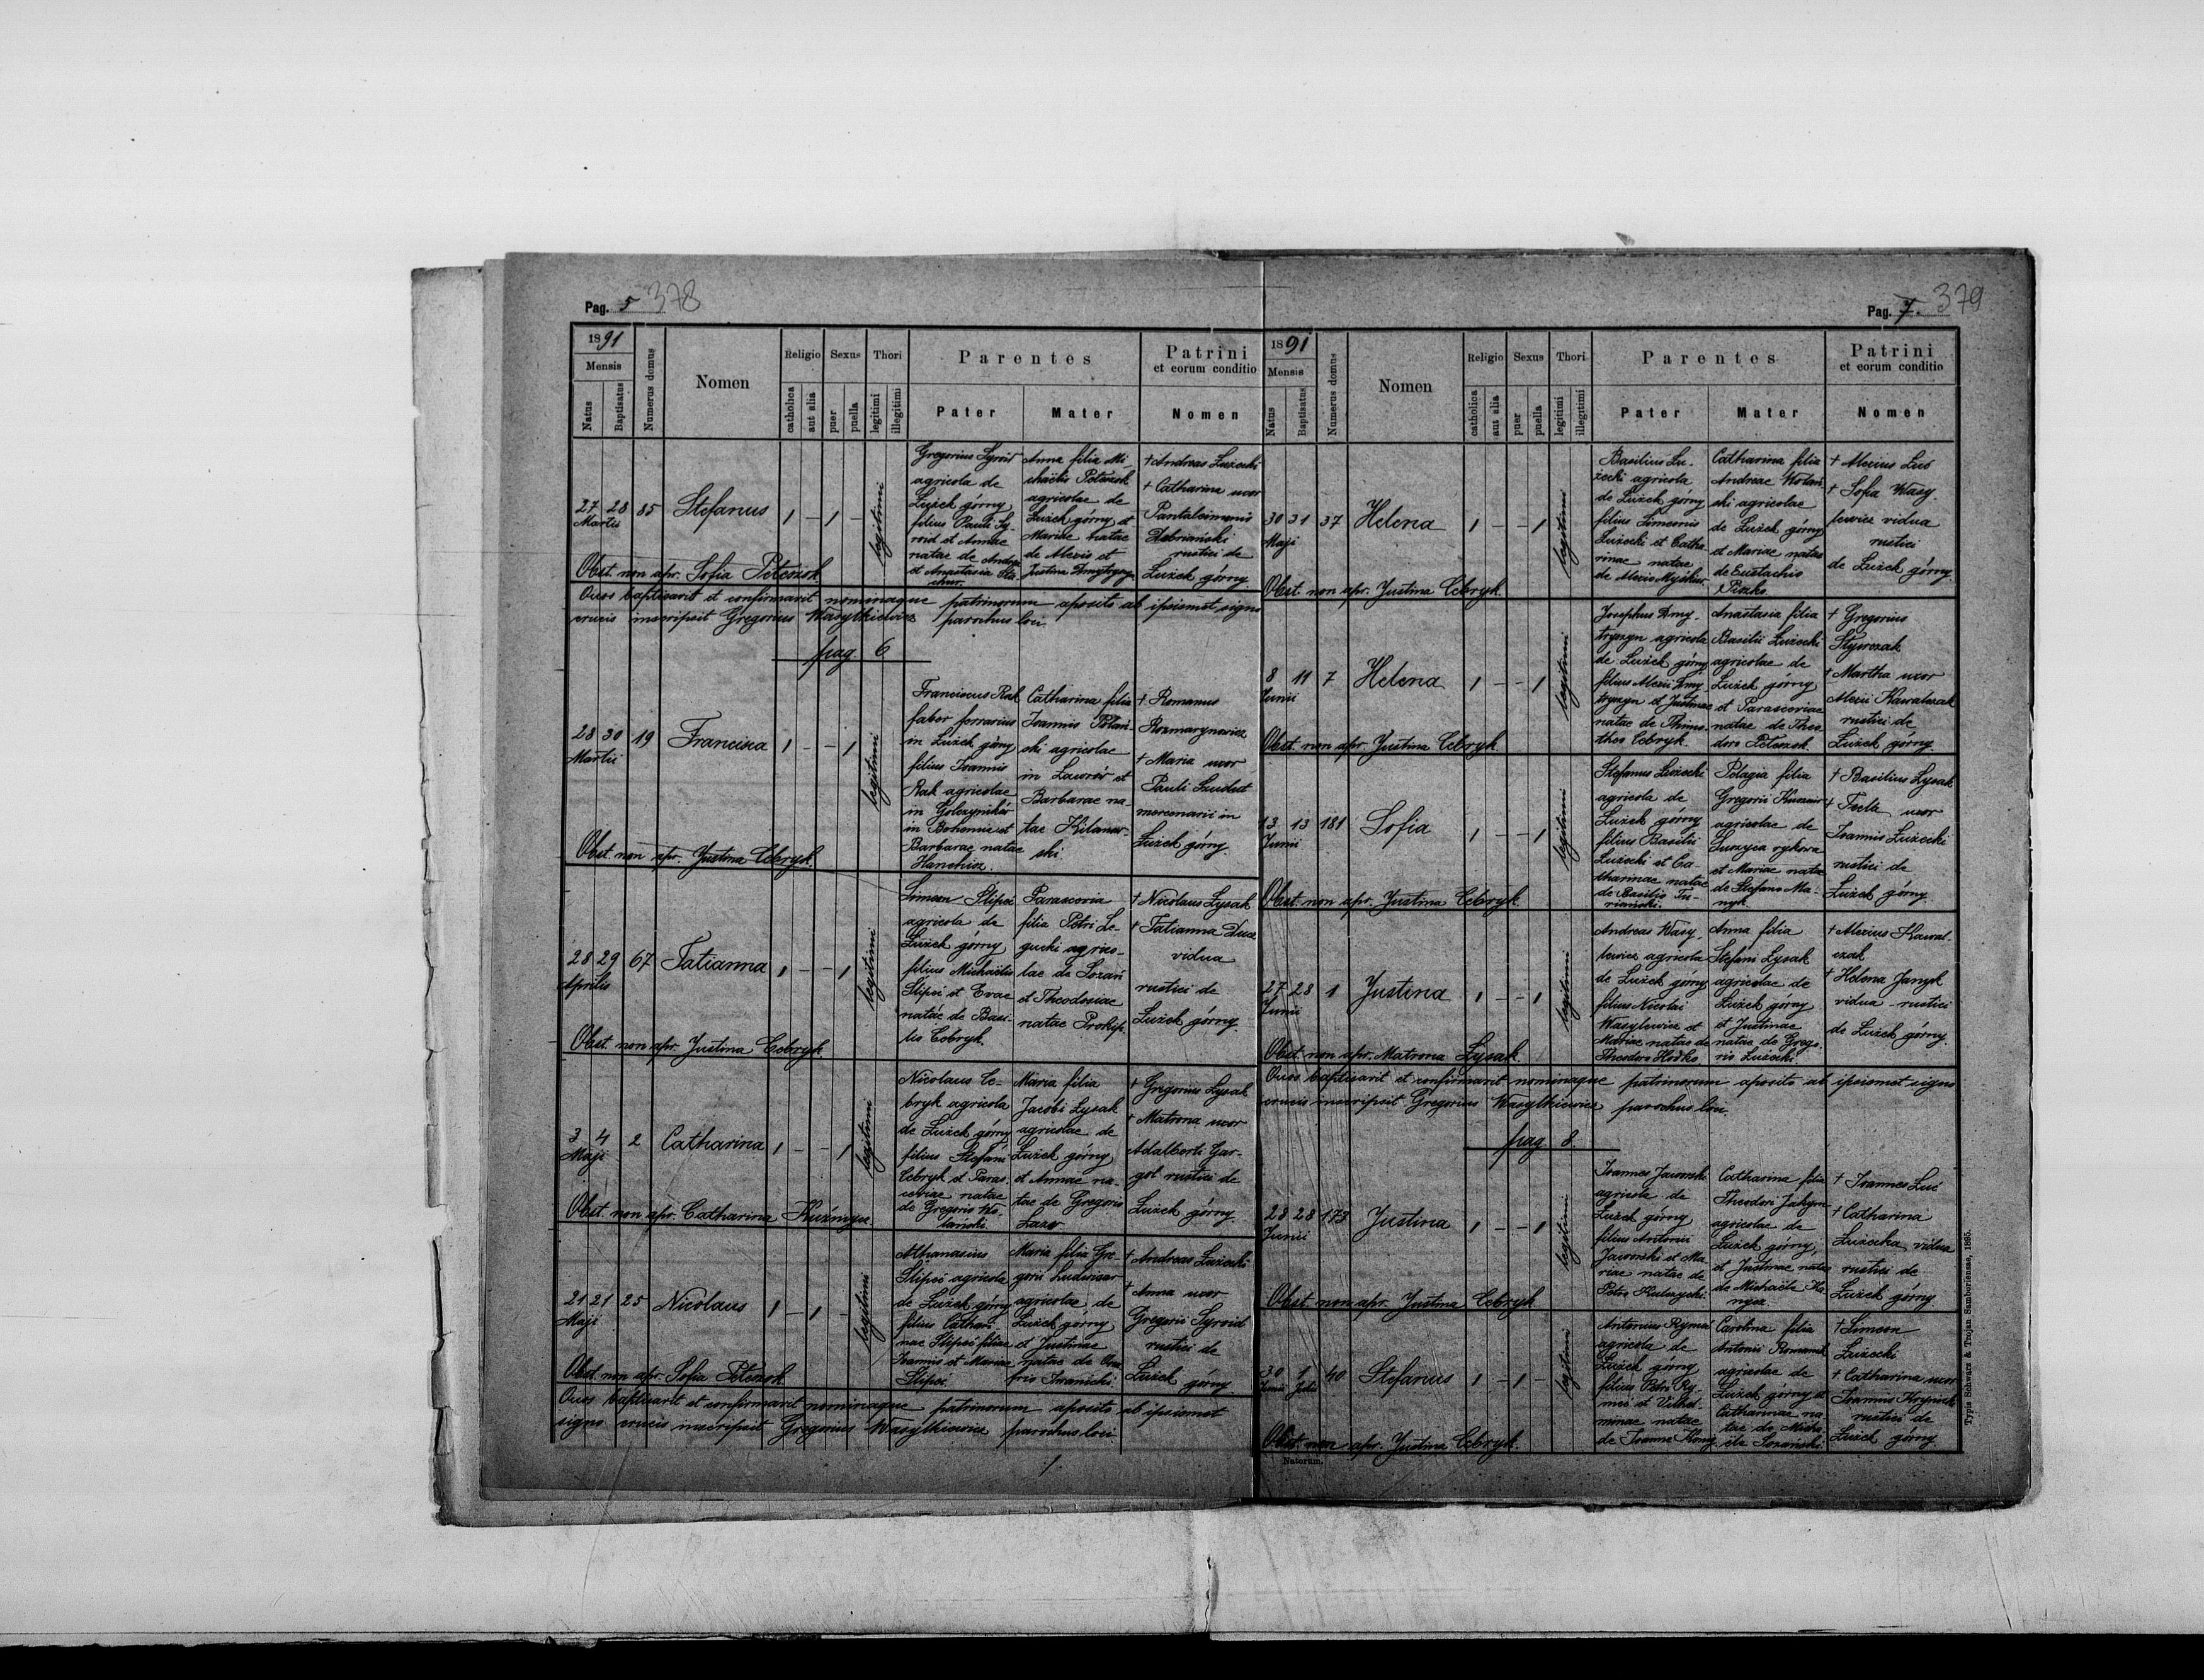 Pag. 5 378
1891
Mensis
Natus
Baptisatus
Numerus domus
Nomen
Religio
catholica
aut alia
Sexus
puer
puella
Thori
legitimi
illegitimi
Parentes
Pater
Mater
Patrini
et eorum conditio
Nomen
27 28 85 Stefanus 1 - 1 - legitimi
Martii
Gregorius Syroid
agricola de
Lużek górny
filius Pauli Sy-
roid et Annae
natae de Andrea
et Anastasia
Anna filia Mi-
chaëlis Petrzok
agricolae de
Lużek górny et
Mariae natae
de Alexio et
Justina Dmytryszyn
† Andreas Lużecki
† Catharina uxor
Pantaleimonis
rustici de
Lużek górny
Obst. non apr. Sofia Peteczok
Quos baptisavit et confirmavit nominaque patrinorum aposito ab ipsismet signo
crucis inscripsit Gregorius Wasylkiewicz parochus loci.
pag. 6
28 30 19 Francisca 1 - - 1 legitimi
Martii
Franciscus Rak
faber ferrarius
in Lużek górny
filius Joannis
Rak agricolae
in
in Bohemia et
Barbarae natae
Catharina filia
Joannis Polań-
ski agricolae
in Lawrów et
Barbarae na-
tae
ski
† Romanus
Rozmarynowicz
† Maria uxor
Pauli
mercenarii in
Lużek górny.
Obst. non apr. Justina Cebryk
28 29 67 Tatianna 1 - - 1 legitimi
Aprilis
Simeon Slipeć
agricola de
Lużek górny
filius Michaëlis
Slipeć et Evae
natae de Basi-
lio Cebryk.
Parascevia
filia Petri Le-
gucki agrico-
lae de Sozań
et Theodosiae
natae Prokip.
† Nicolaus Lysak
† Tatianna
vidua
rustici de
Lużek górny.
Obst. non apr. Justina Cebryk
3 4 2 Catharina 1 - - 1 legitimi
Maji
Nicolaus Ce-
bryk agricola
de Lużek górny
filius Stefani
Cebryk et Paras-
ceviae natae
de Gregorio Wo-
lański.
Maria filia
Jacobi Lysak
agricolae de
Lużek górny
et Annae na-
tae de Gregorio
Lazor
† Gregorius Lysak
† Matrona uxor
Adalberti Gar-
gol rustici de
Lużek górny.
Obst. non apr. Catharina
21 21 25 Nicolaus 1 - 1 - legitimi
Maji
Athanasius
Slipeć agricola
de Lużek górny
filius Cathari-
nae Slipeć filiae
Joannis et Mariae
Slipeć.
Maria filia Gre-
gorii
agricolae de
Lużek górny
et Justinae
natae de Onu-
frio Iwanicki.
† Andreas Lużecki
† Anna uxor
Gregorii Syroid
rustici de
Lużek górny
Obst. non apr. Sofia Peteczok
Quos baptisavit et confirmavit nominaque patrinorum aposito ab ipsismet
signo crucis inscripsit Gregorius Wasylkiewicz parochus loci.
1
Pag. 7. 379
1891
Mensis
Natus
Baptisatus
Numerus domus
Nomen
Religio
catholica
aut alia
Sexus
puer
puella
Thori
legitimi
illegitimi
Parentes
Pater
Mater
Patrini
et eorum conditio
Nomen
30 31 37 Helena 1 - - 1 legitimi
Maji
Basilius Lu-
żecki agricola
de Lużek górny
filius Simeonis
Lużecki et Catha-
rinae natae
de Alexio
Catharina filia
Andreae Wolań-
ski agricolae
de Lużek górny
et Mariae natae
de Eustachio
† Alexius Luć
† Sofia Wasy-
lewicz vidua
rustici
de Lużek górny.
Obst. non apr. Justina Cebryk.
8 11 7 Helena 1 - - 1 legitimi
Junii
Josephus Dmy-
tryszyn agricola
de Lużek górny
filius Alexii Dmy-
tryszyn et Justinae
natae de Thimo-
theo Cebryk.
Anastasia filia
Basilii Lużecki
agricolae de
Lużek górny
et Parasceviae
natae de Theo-
doro Peteczok.
† Gregorius
† Martha uxor
Alexii Kawalczak
rustici de
Lużek górny.
Obst. non apr. Justina Cebryk
13 13 181 Sofia 1 - - 1 legitimi
Junii
Stefanus Lużecki
agricola de
Lużek górny
filius Basilii
Lużecki et Ca-
tharinae natae
de Basilio Tu-
riański.
Pelagia filia
Gregorii
agricolae de
Suszyca rykowa
et Mariae natae
de Stefano Ma-
nyk
† Basilius Lysak
† Tecla uxor
Joannis Lużecki
rustici de
Lużek górny
Obst. non apr. Justina Cebryk.
27 28 1 Justina 1 - - 1 legitimi
Junii
Andreas Wasy-
lewicz agricola
de Lużek górny
filius Nicolai
Wasylewicz et
Mariae natae de
Theodoro
Anna filia
Stefani Lysak
agricolae de
Lużek górny
et Justinae
natae de Grego-
rio Lużecki
† Alexius Kawal-
czak
† Helena Janyk
vidua rustici
de Lużek górny.
Obst. non apr. Matrona Lysak.
Quos baptisavit et confirmavit nominaque patrinorum aposito ab ipsismet signo
crucis inscripsit Gregorius Wasylkiewicz parochus loci.
pag 8.
28 28 173 Justina 1 - - 1 legitimi
Junii
Joannes Jaworski
agricola de
Lużek górny
filius Antonii
Jaworski et Ma-
riae natae de
Petro Kulczycki.
Catharina filia
Theodori
agricolae de
Lużek górny,
et Justinae natae
de Michaële
† Joannes Luć
† Catharina
Lużecka vidua
rustici de
Lużek górny
Obst. non apr. Justina Cebryk
30 1 40 Stefanus 1 - 1 - legitimi
Junii Julii
Antonius
agricola de
Lużek górny
filius Petri
et Vilhel-
minae natae
de Joanne
Carolina filia
Antonii
agricolae de
Lużek górny et
Catharinae na-
tae de Micha-
ële Sozański
† Simeon
Lużecki
† Catharina uxor
Joannis
rustici de
Lużek górny.
Obst. non apr. Justina Cebryk.
Natorum.
Typis Schwarz & Trojan Samboriensae, 1895.